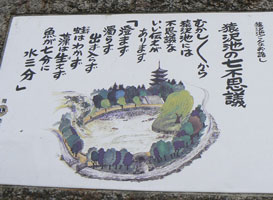 猿沢池の七不思議
むかし〳〵から
猿沢池には
不思議な
いい伝えが
あります。
「澄まず
濁らず
出ず入らず
蛙はわかず
藻は生えず
魚が七分に
水三分」